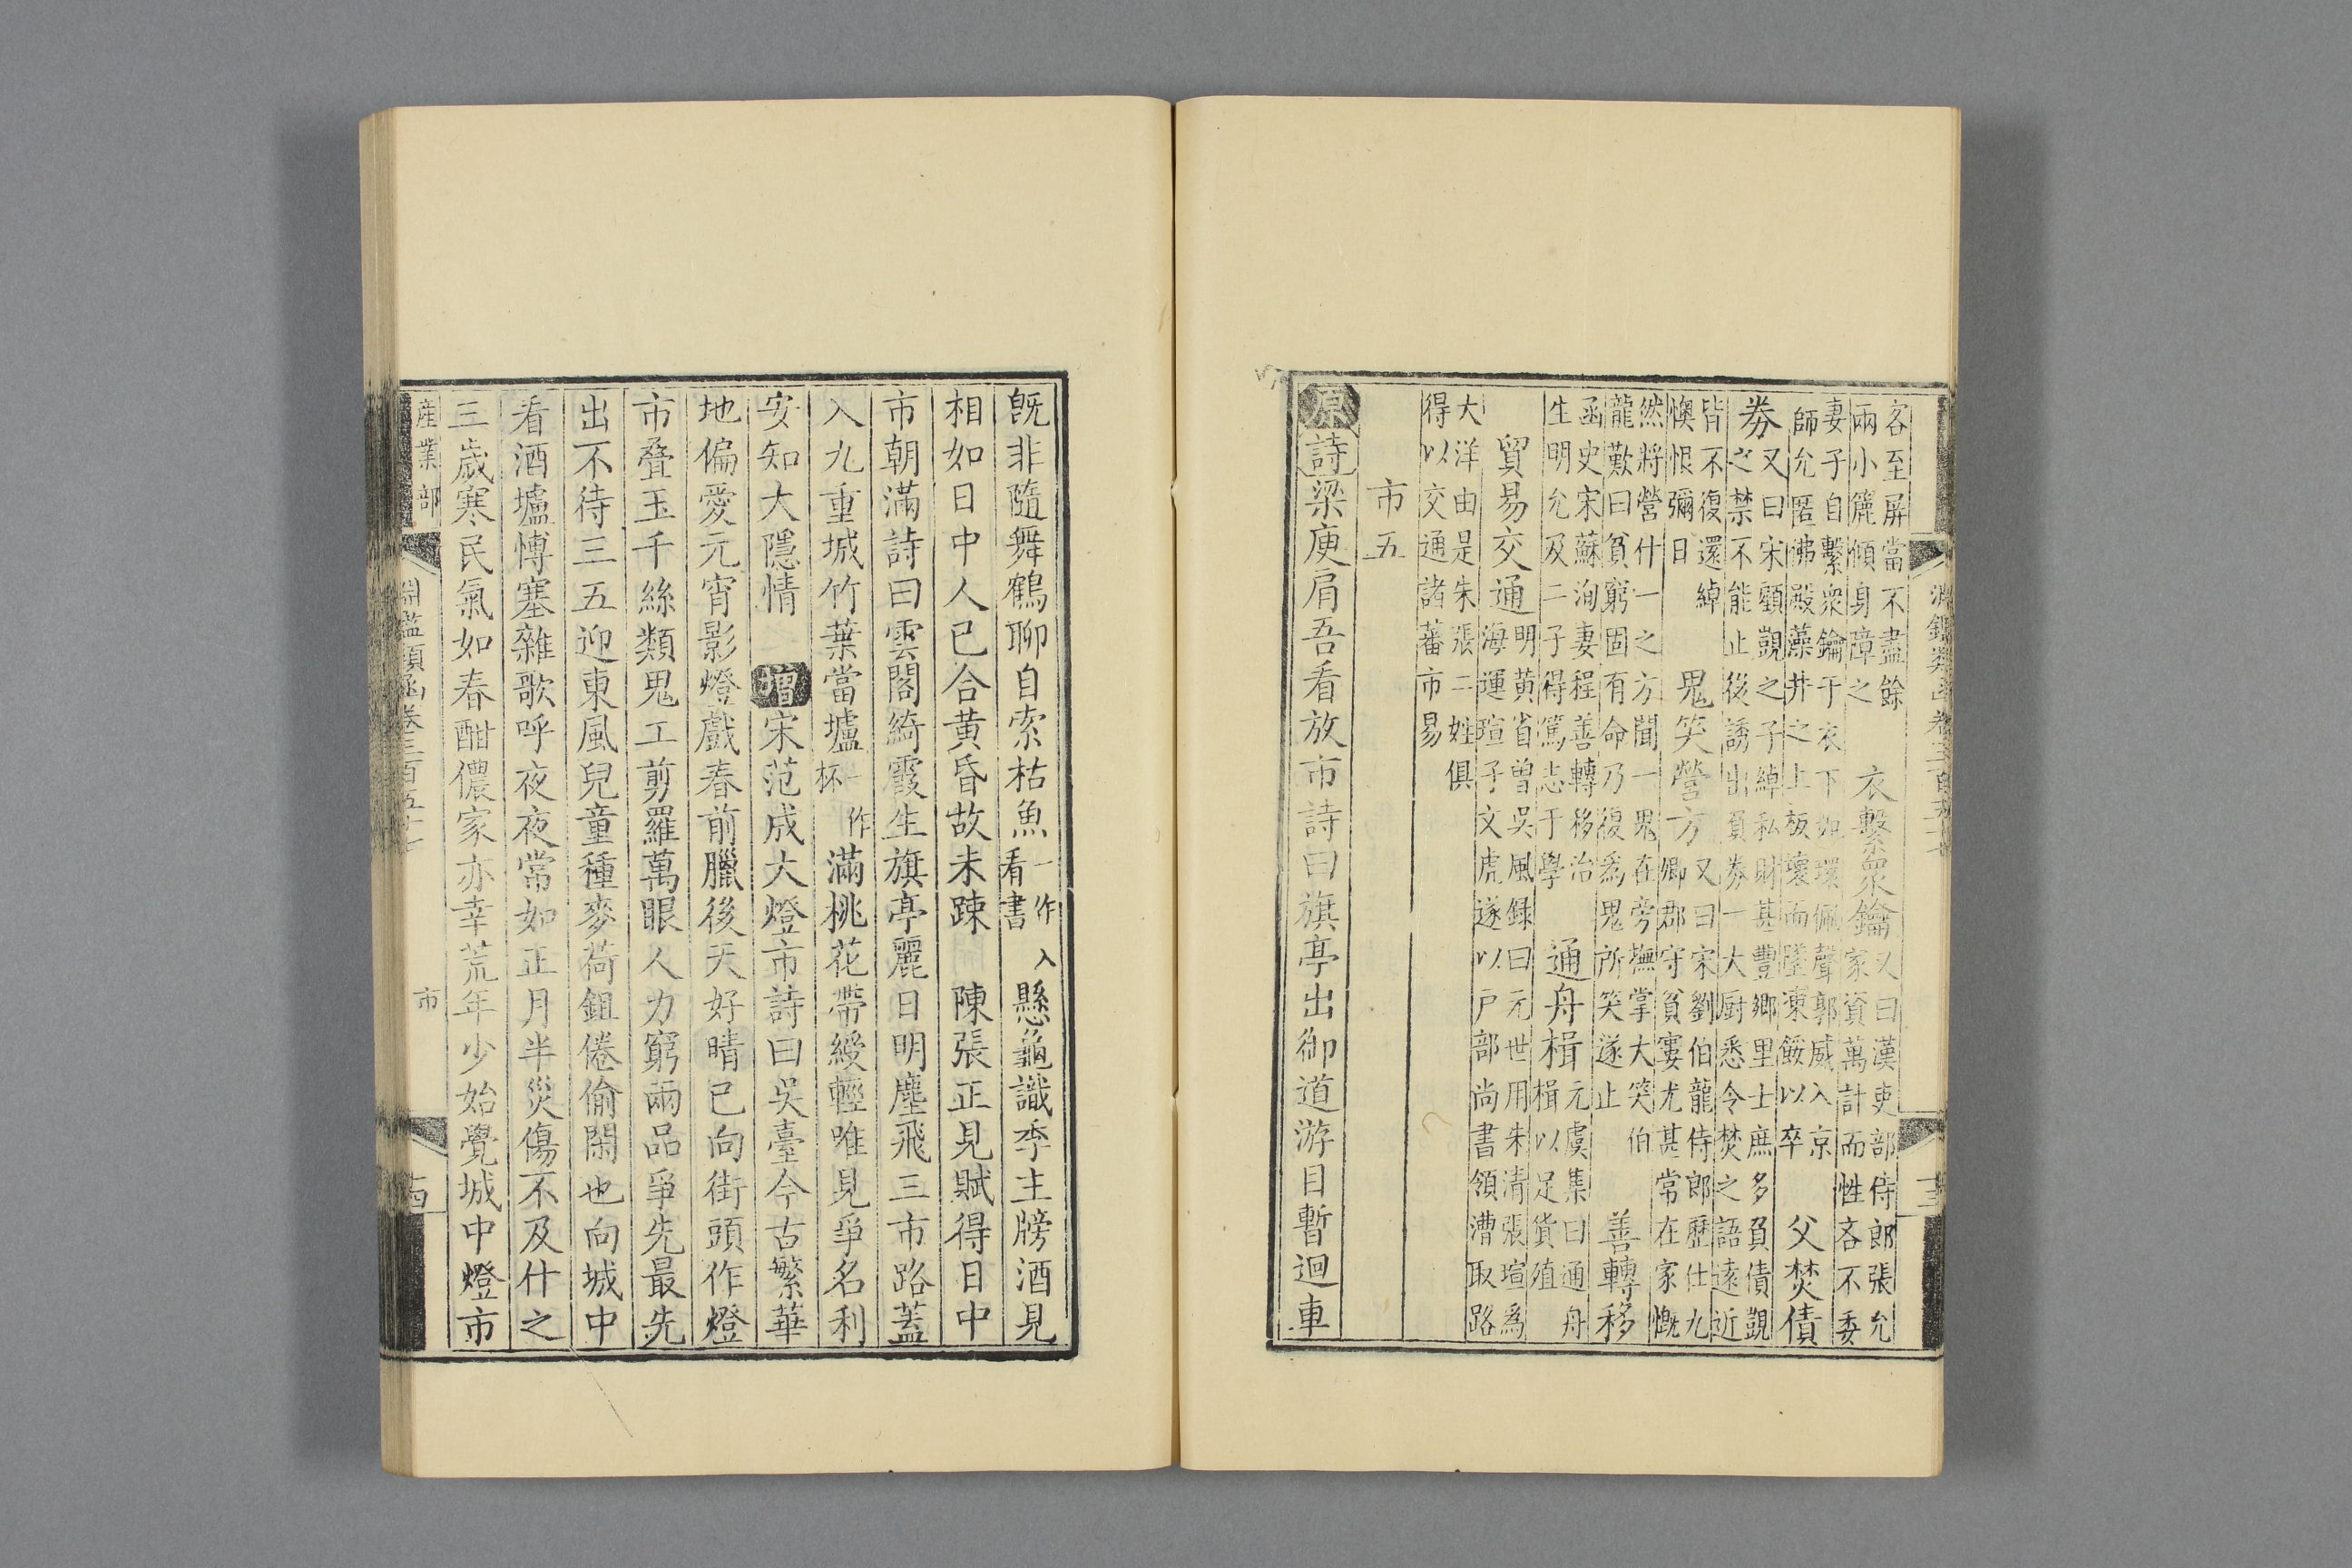 客至屏當不盡餘
兩小簏傾身障之
衣繫衆鑰
又曰漢吏部侍郎張允
家資萬計而性吝不委
妻子自繫衆鑰于衣下如環佩聲郭威入京
師允匿佛殿藻井之上板壞而墜凍餒以卒
父焚債
券
又曰宋顧覬之子綽私財甚豐鄉里士庶多負債覬
之禁不能止後誘出負券一大厨悉令焚之語遠近
皆不復還綽
懊恨彌日
鬼笑營方
又曰宋劉伯龍侍郎歷仕九
卿郡守貧窶尤甚常在家慨
然將營什一之方聞一鬼在旁撫掌大笑伯
龍歎曰貧窮固有命乃復爲鬼所笑遂止
善轉移
函史宋蘇洵妻程善轉移治
生明允及二子得篤志于學
通舟楫
元虞集曰通舟
楫以足貨殖
貿易交通
明黄省曾吳風録曰元世用朱清張瑄爲
海運瑄子文虎遂以戸部尚書領漕取路
大洋由是朱張二姓俱
得以交通諸蕃市易
市五
原詩梁庾肩吾看放市詩曰旗亭出御道游目暫迴車
既非隨舞鶴聊自索枯魚一作入看書懸龜識季主牓酒見
相如日中人已合黄昏故未踈　陳張正見賦得日中
市朝滿詩曰雲閣綺霞生旗亭麗日明塵飛三市路蓋
入九重城竹葉當壚一作杯滿桃花帶綬輕唯見爭名利
安知大隱情　增宋范成大燈市詩曰吳臺今古繁華
地偏愛元宵影燈戲春前臘後天好晴已向街頭作燈
市疊玉千絲類鬼工剪羅萬眼人力窮兩品爭先最先
出不待三五迎東風兒童種麥荷鉏倦偷閑也向城中
看酒壚愽塞雜歌呼夜夜常如正月半災傷不及什之
三歲寒民氣如春酣儂家亦幸荒年少始覺城中燈市
産業部
淵鑑類函卷三百五十七
市